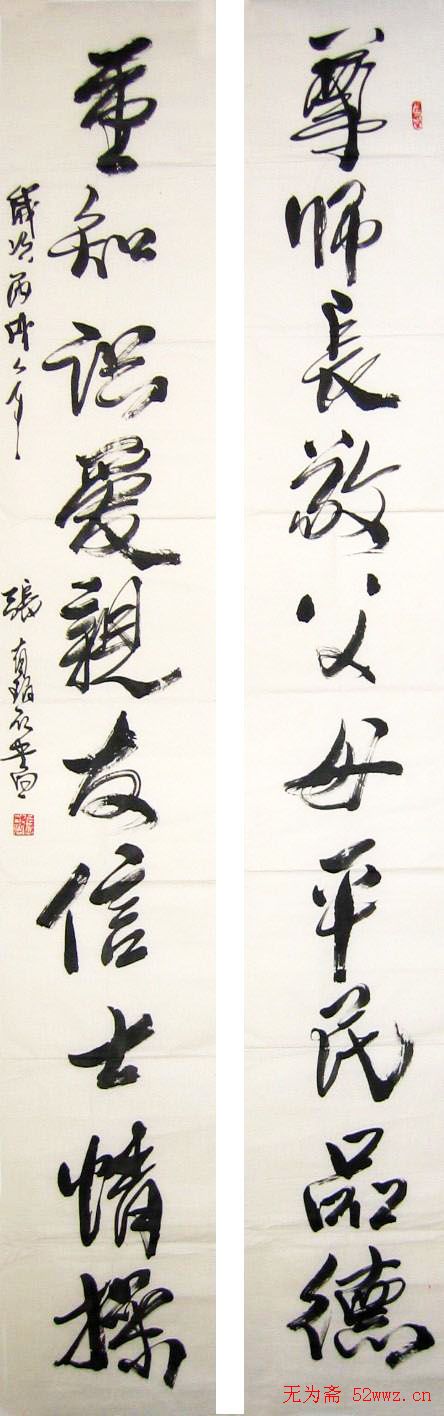 尊师长敬父母平民品德
重知识爱亲友信士情操
歲次丙戌
張
无为斋 52wwz.cn